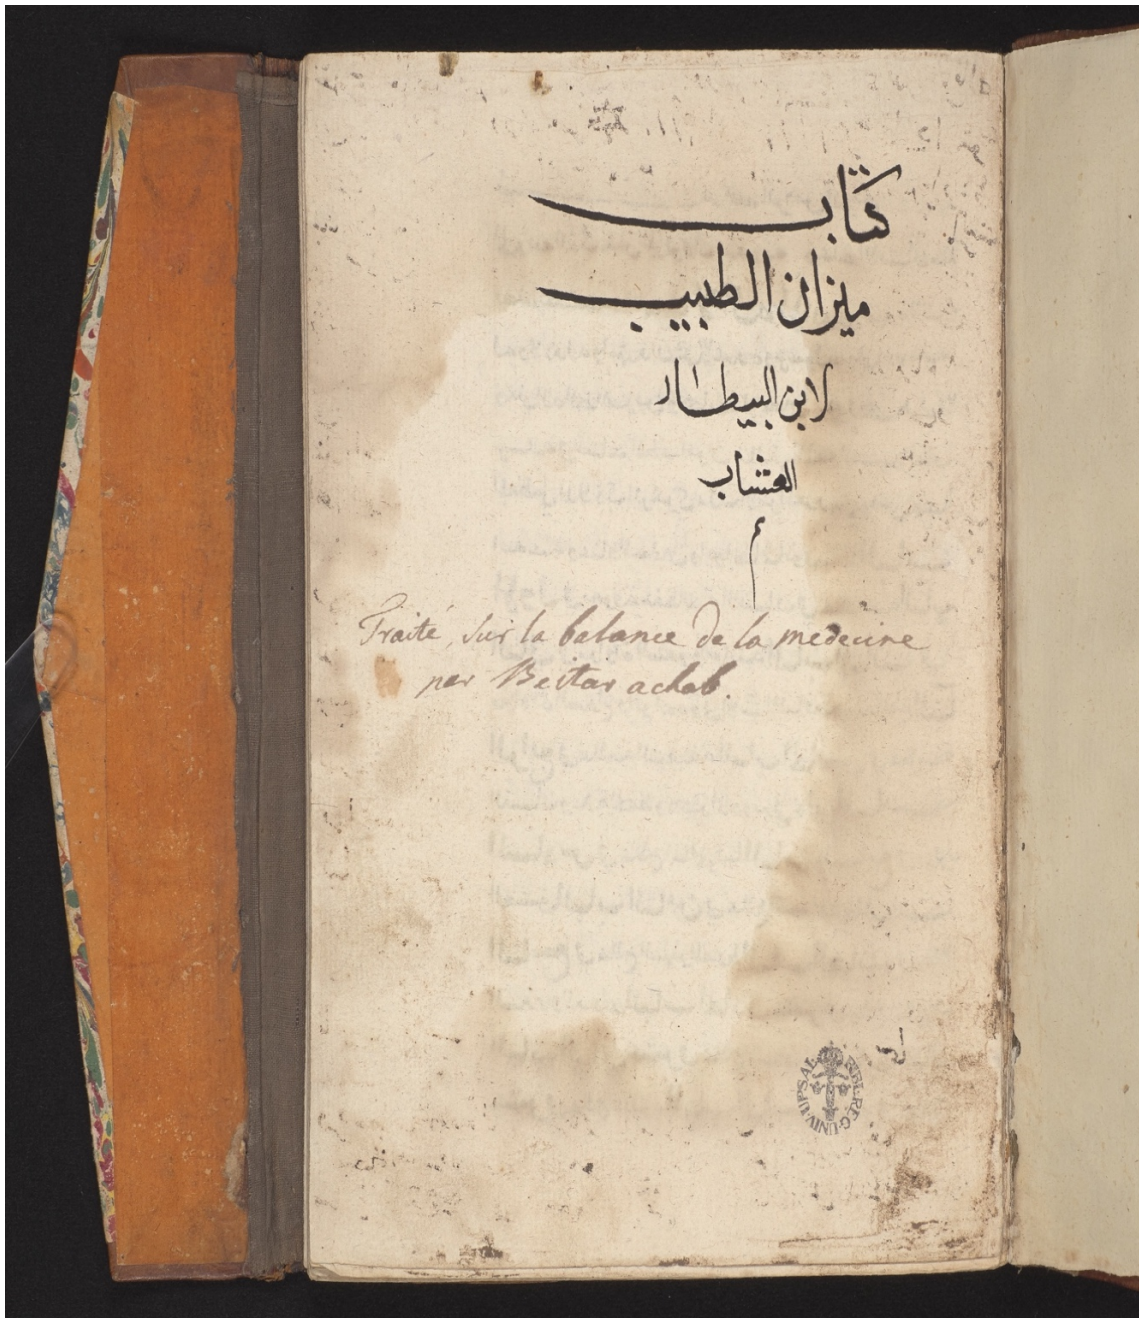 كتاب
ميزان الطبيب
لابن البيطار
العشاب
م
Traité, sur la balance de la medecine
par Beitar achab.
BIBL·REG·UNIV·UPSAL